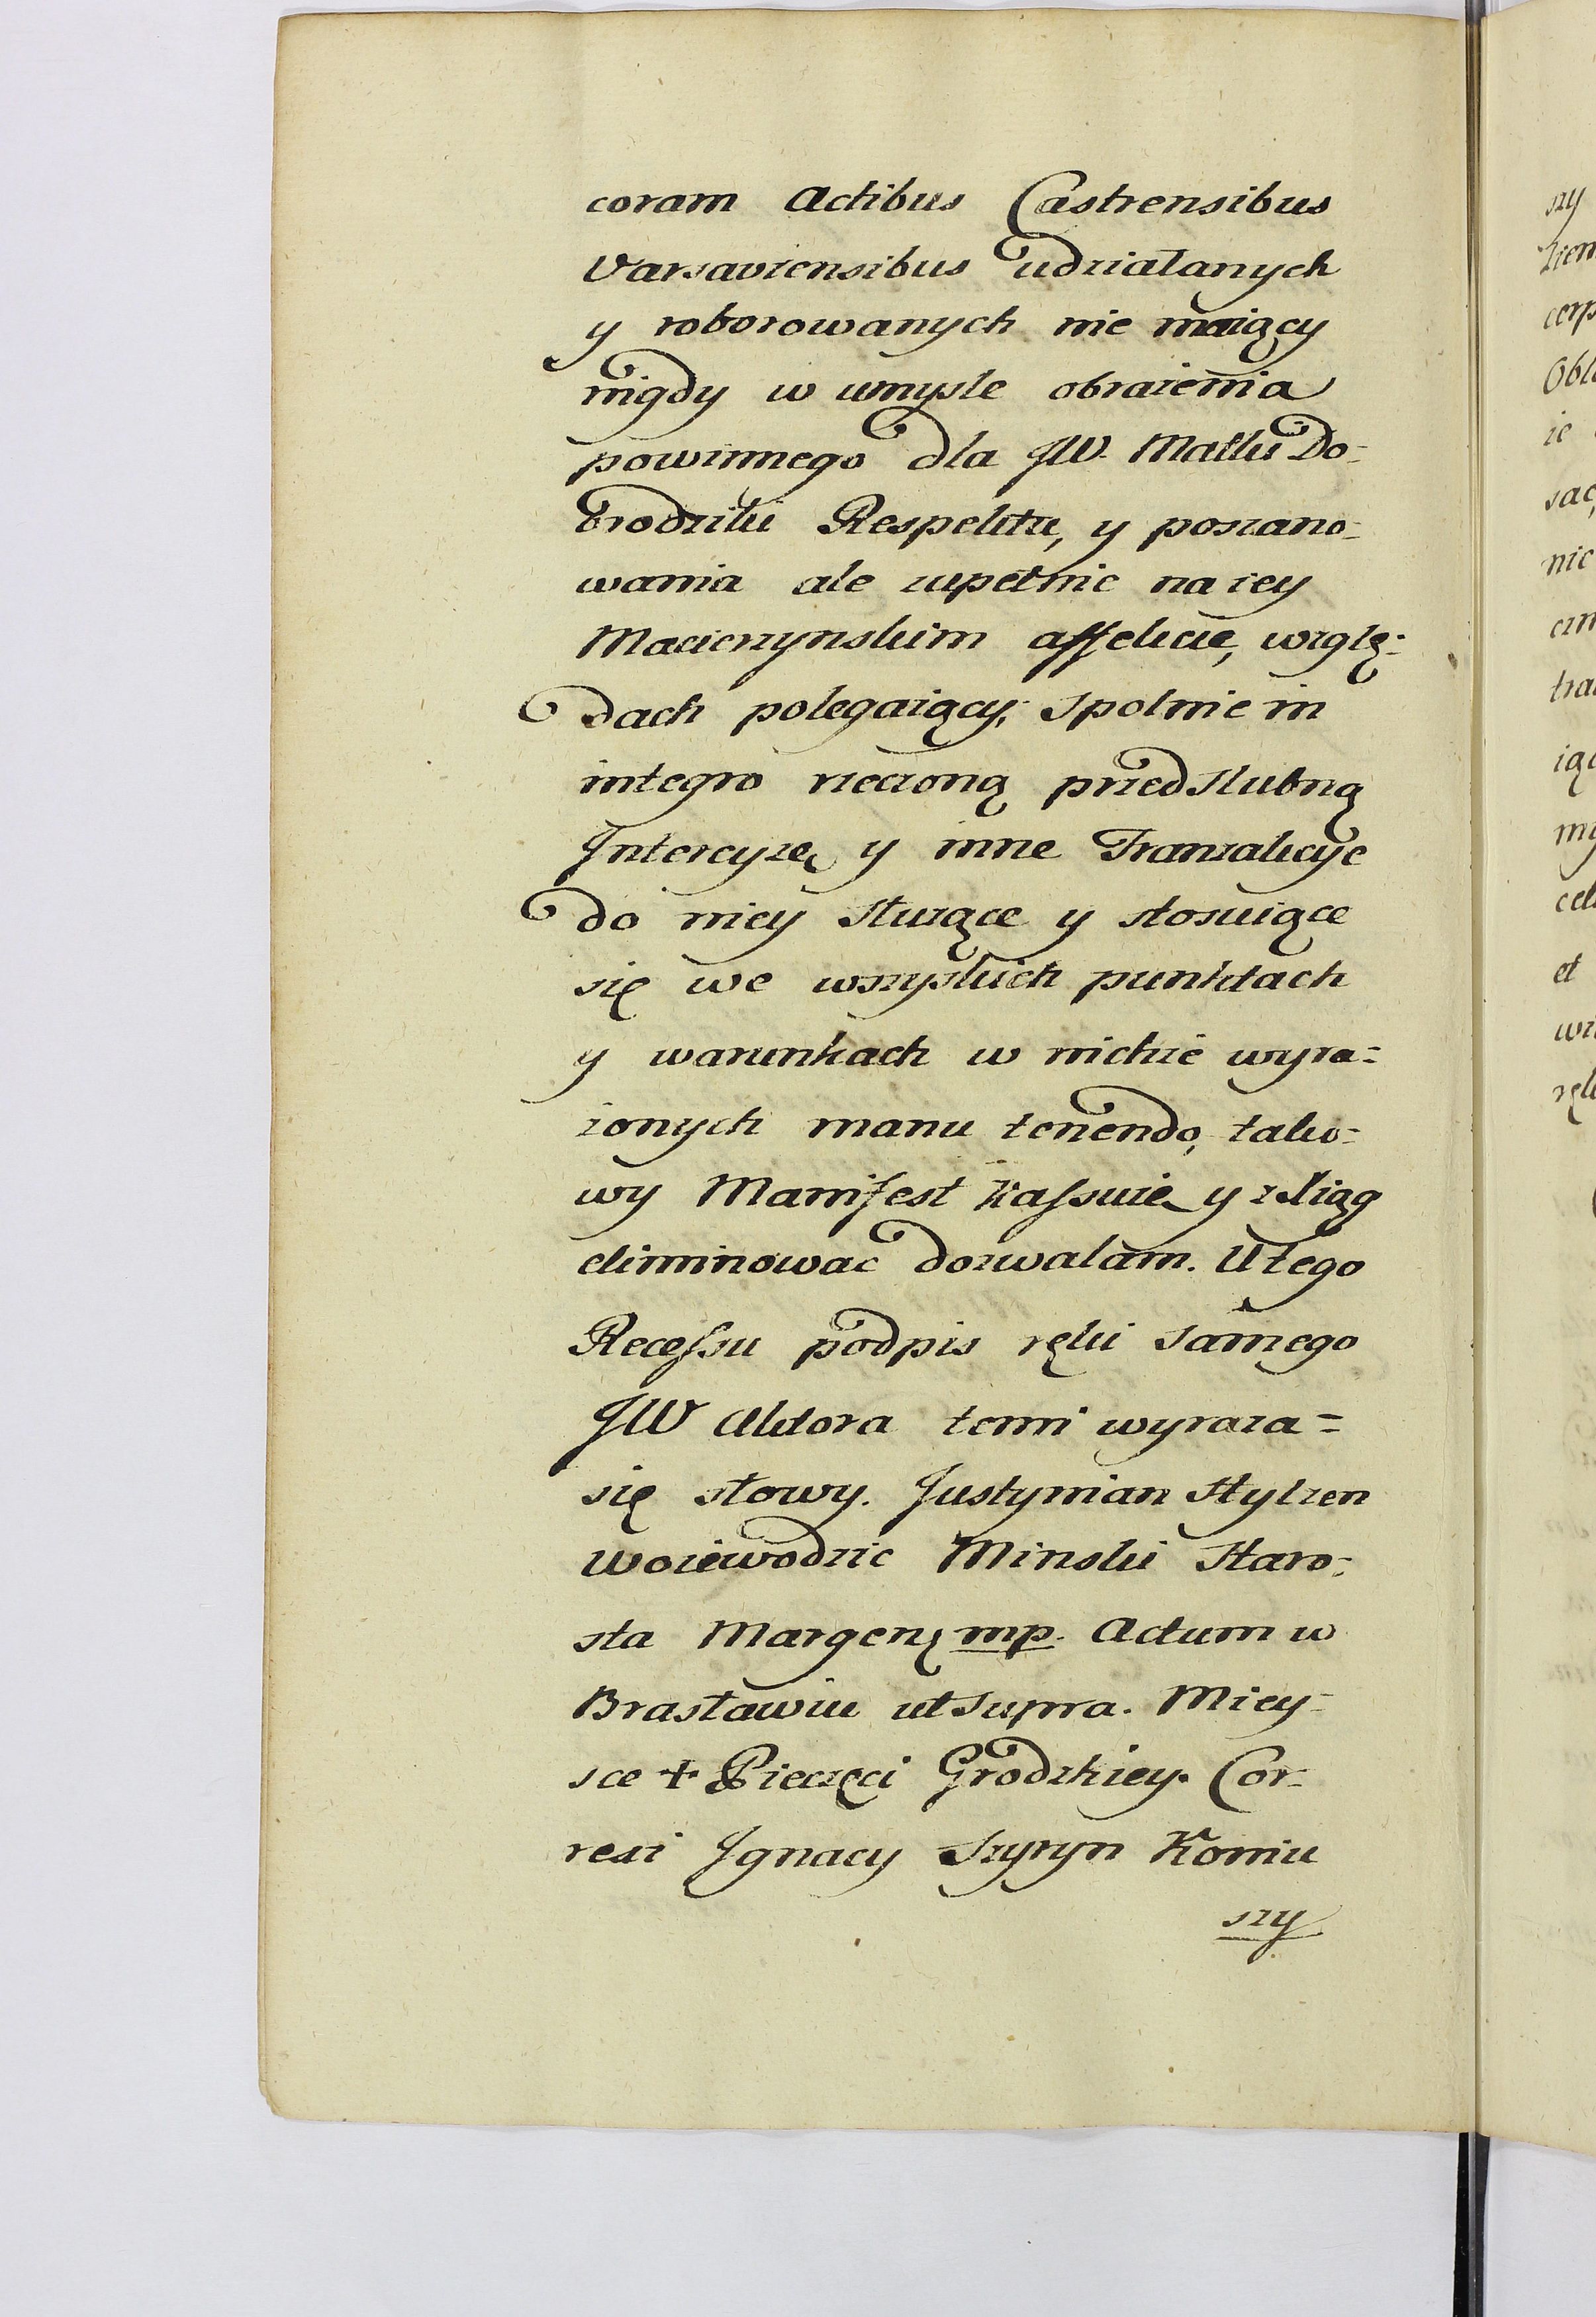 coram Actibus Castrensibus
Varsaviensibus udziałanych
y roborowanych nie maiący
nigdy w umysle obrazenia
powinnego dla JW. Matki Do-
brodziki Respektu, y poszano-
wania ale zupełnie na iey
Macierzynskim affekcie, wzglę-
dach polegaiący, spolnie in
integro rzeczoną przedslubną
Intercyzę y inne Tranzakcye
do niey służące y stosuiące
się we wszyskich punktach
y warunkach w nichże wyra-
żonych manu tenendo, tako-
wy Manifest kassuię y z Xiąg
eliminowac dozwalam. U tego
Recessu podpis ręki samego
JW Aktora temi wyraza-
się słowy. Justynian Hylzen
Woiewodzic Minski Staro-
sta Margen, mp. Actum w
Brasławiu ut supra. Miey-
sce + Pieczęci Grodzkiey. Cor-
rexi Ignacy Szyryn Koniu
szy
szy